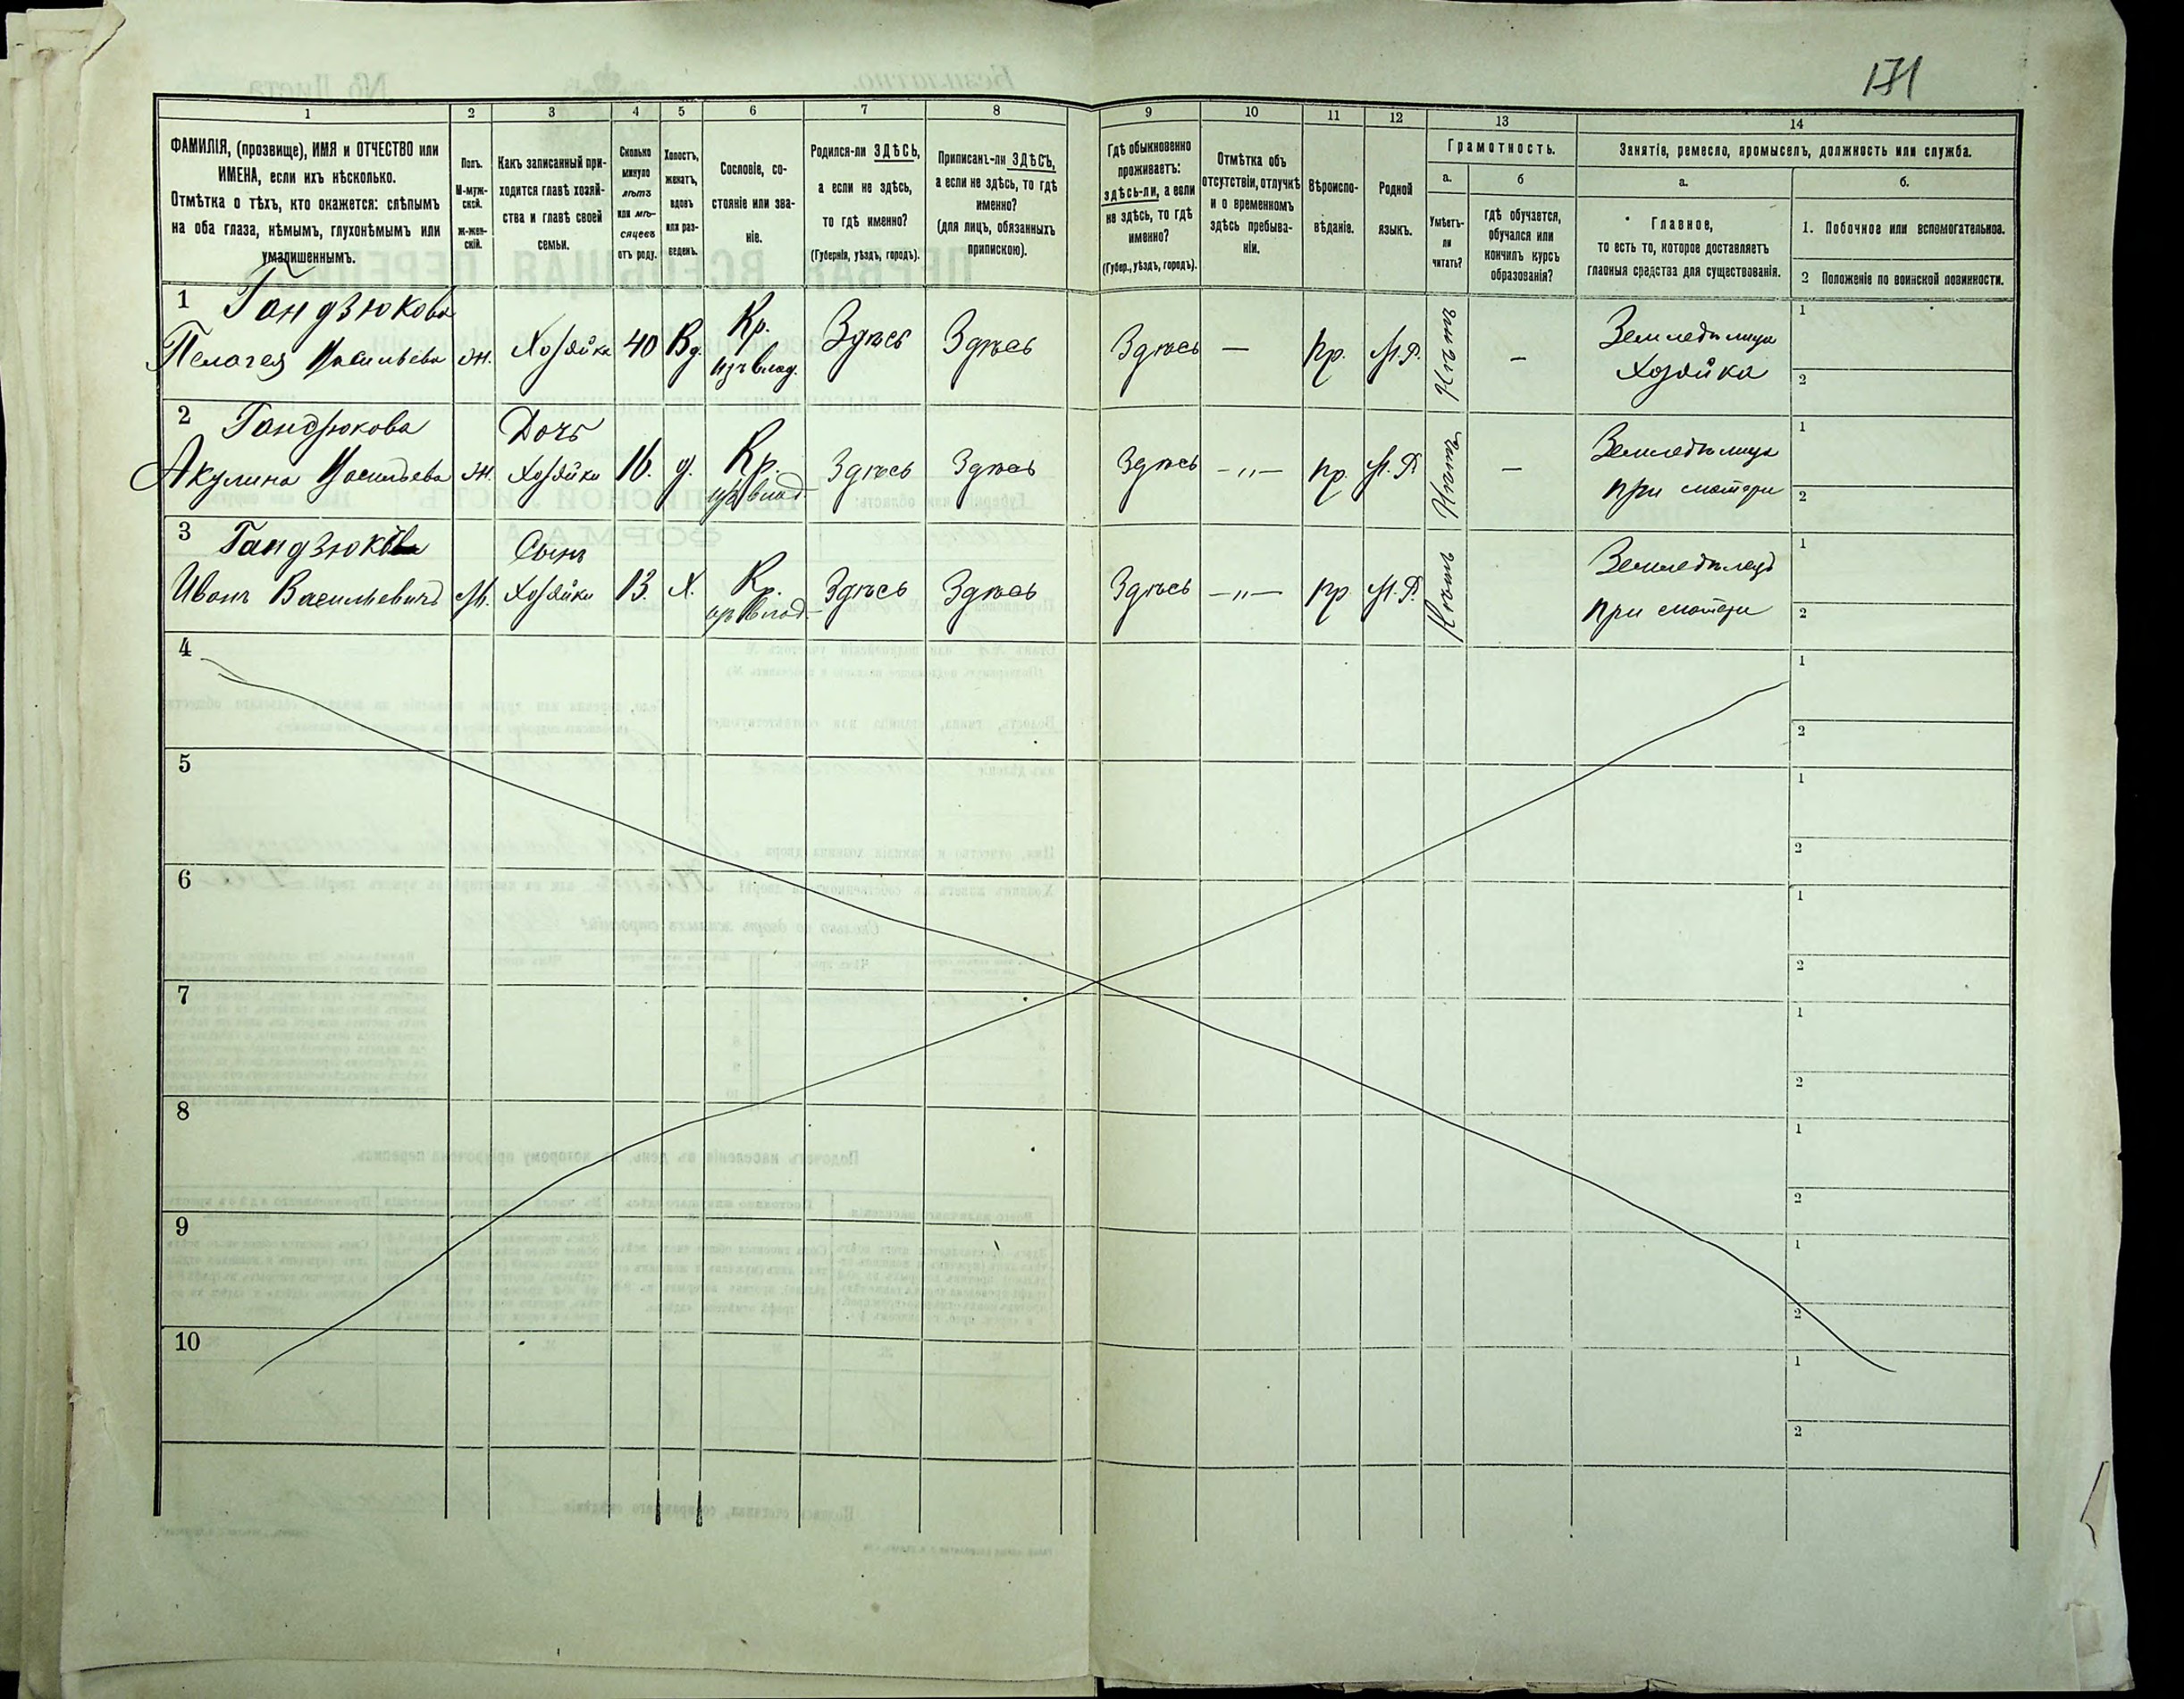 171
1
2
3
4
5
6
7
8
9
10
11
12
13
14
ФАМИЛІЯ, (прозвище), ИМЯ и ОТЧЕСТВО или
ИМЕНА, если ихъ нѣсколько.
Отмѣтка о тѣхъ, кто окажется: слѣпымъ
на оба глаза, нѣмымъ, глухонѣмымъ или
умалишеннымъ.
Полъ.
М-муж-
ской.
Ж-жен-
скій.
Какъ записанный при-
ходится главѣ хозяй-
ства и главѣ своей
семьи.
Сколько
минуло
лѣтъ
или мѣ-
сяцевъ
отъ роду.
Холостъ,
женатъ,
вдовъ
или раз-
веденъ.
Сословіе, со-
стояніе или зва-
ніе.
Родился-ли ЗДѢСЬ,
а если не здѣсь,
то гдѣ именно?
(Губернія, уѣздъ, городъ).
Приписанъ-ли ЗДѢСЬ,
а если не здѣсь, то гдѣ
именно?
(для лицъ, обязанныхъ
припискою).
Гдѣ обыкновенно
проживаетъ:
ЗДѢСЬ-ЛИ, а если
не здѣсь, то гдѣ
именно?
(Губер., уѣздъ, городъ).
Отмѣтка объ
отсутствіи, отлучкѣ
и о временномъ
здѣсь пребыва-
ніи.
Вѣроиспо-
вѣданіе.
Родной
языкъ.
Грамотность.
а.
Умѣетъ-
ли
читать?
б
гдѣ обучается,
обучался или
кончилъ курсъ
образованія?
Занятіе, ремесло, промыселъ, должность или служба.
а.
Главное,
то есть то, которое доставляетъ
главныя средства для существованія.
б.
1. Побочное или вспомогательное.
2 Положеніе по воинской повинности.
1 Гандзюкова
Пелагея Васильева Ж. Хозяйка 40 Вд. Кр. изъ влад. Здѣсь Здѣсь Здѣсь — Пр. М.Р. Нѣтъ — Земледѣлица Хозяйка 1 2
2 Гандзюкова
Акулина Васильева Ж. Дочь Хозяйки 16. д. Кр. изъ влад. Здѣсь Здѣсь Здѣсь —„— Пр. М.Р. Нѣтъ — Земледѣлица при матери 1 2
3 Гандзюковъ
Иванъ Васильевичъ М. Сынъ Хозяйки 13. Х. Кр. изъ влад. Здѣсь Здѣсь Здѣсь —„— Пр М.Р. Нѣтъ Земледѣлецъ при матери 1 2
4 1 2
5 1 2
6 1 2
7 1 2
8 1 2
9 1 2
10 1 2